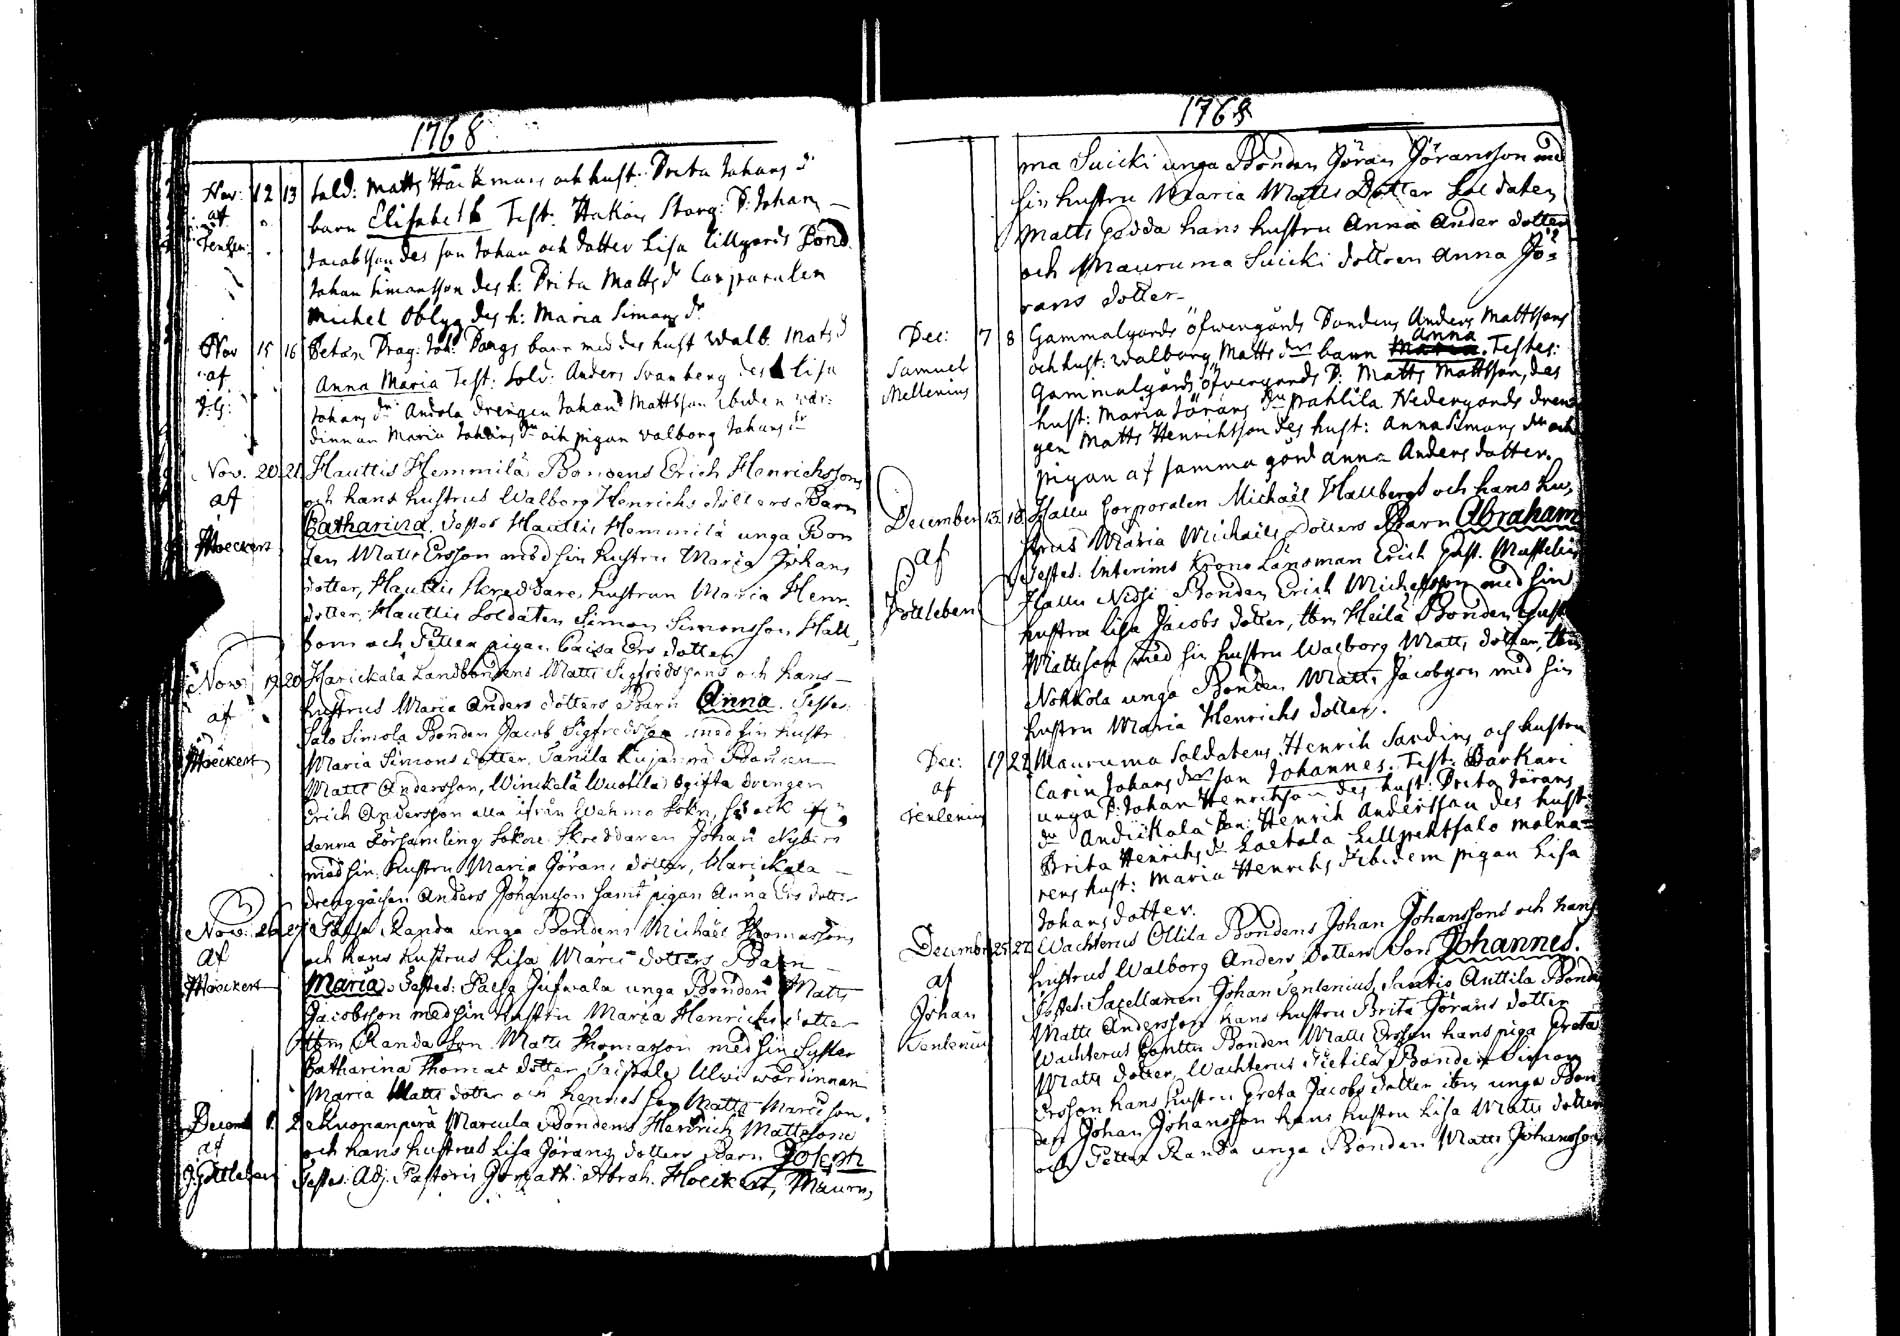 1768
Nov: 12 13 Sold: Matts Håkmans och hust: Brita Johans dr
af barn Elisabeth Test: Håkans Storg: B: Johan
Jacobsson des son Johan och dotter Lisa Lillgords Bond
Johan Simonsson des h: Brita Matts dr Corporalen
Michel Oblyg des h: Maria Simons dr
Nov 15 16 Drag: Joh: Bangs barn med des hust Walb. Mats d
af Anna Maria Test: Sold: Anders Svanberg des h Lisa
J.G: Johans dr Andola drengen Johan Mattsson ibidem wär-
dinnan Maria Johans dr och pigan Valborg Johans dr
Nov. 20 21 Hauttis Hemmilä Bondens Erich Henrichssons
af och hans hustrus Walborg Henrichs dotters Barn
Catharina. Testes Hauttis Hemmilä unga Bon
Hoeckert den Matts Ersson med sin hustru Maria Johans
dotter, Hauttis Skreddare hustrun Maria Henr.
dotter, Hauttis Soldaten Simon Simonsson Hall
bom och pigan Caisa Ers dotter
Nov: 19 20 Harickala Landbondens Matts Sigfredssons och hans
af hustrus Maria Anders dotters Barn Anna. Testes
Salo Simola Bonden Jacob Sigfredsson med sin hustr
Hoeckert Maria Simons dotter, Tanila Kujanpä Bonden
Matts Andersson, Winckelä Wuotila ogifta drengen
Erich Andersson alla ifrån Wehmo Sokn, så ock ifrån
denna Församling Sokne Skreddaren Johan Nyberg
med sin hustru Maria Jörans dotter, Harickala
drenggåssen Anders Johansson samt pigan Anna Ers dotter
Nov: 26 27 Randa unga Bondens Michaël Thomassons
af och hans hustrus Lisa Mårts dotters Barn
Hoeckert Maria. Testes: Junfwala unga Bonden Matts
Jacobsson med sin hustru Maria Henrichs dotter
Itm Randa Son Matts Thomasson med sin Syster
Catharina Thomas dotter, Ulwi wärdinnan
Maria Matts dotter och hennes son Matts Mårtsson.
Decemb 1. 2. Kuopanperä Marcula Bondens Henrich Mattssons
af och hans hustrus Lisa Jörans dotters Barn Joseph
J. Gottleben Testes: Adj: Pastoris Abrah: Hoeckert, Mauru
1768
ma Suicki unga Bonden Jöran Jöransson med
sin hustru Maria Matts Dotter Soldaten
Matts Gädda hans hustru Anna Anders dotter
och Mauruma Suicki dottren Anna Jö-
rans dotter
Dec: 7 8 Gammalgords öfwergårds Bondens Anders Mattssons
och hust: Walborg Matts drs barn Anna. Testes:
Samuel Gammalgårds öfvergords B: Matts Mattsson, des
Mellenius hust: Maria Jörans dr Pahlila Nedergords dren
gen Matts Henriksson des hust: Anna Simons dr och
pigan af samma gård Anna Anders dotter.
December 15. 18. Hallu Corporalen Michaël Hallbergs och hans hu
af strus Maria Michaëls Dotters Barn Abraham
Testes: Interims Krono Länsman Erich Gust. Mustelin
Gottleben Hallu Nissi Bonden Erich Michelsson med sin
hustru Lisa Jacobs dotter, Itm Heilä Bonden Gust
Mattsson med sin hustru Walborg Matts dotter, Itm
Nokkola unga Bonden Matts Jacobsson med sin
hustru Maria Henrichs dotter.
Dec: 19 22 Mauruma Soldatens Henrik Sandins och hustru
af Carin Johans drs son Johannes. Test: Barkari
Tenlenius unga B: Johan Henriksson des hust: Brita Jörans
dr Andickala Bon: Henrik Andersson des hust:
Brita Henriks dr Laetala Lillpentsalo molna-
rens hust: Maria Henriks dr ibidem pigan Lisa
Johans dotter.
December 25 27 Wachterus Ollila Bondens Johan Johanssons och hans
af hustrus Walborg Anders Dotters Son Johannes.
Johan Testes: Sacellanen Johan Tenlenius, Santio Anttila Bonden
Tenlenius Matts Andersson hans hustru Brita Jörans dotter
Wachterus Bonden Matts Ersson hans piga Greta
Matts dotter, Wachterus Pietilä Bonden Simon
Ersson hans hustru Greta Jacobs dotter item unga Bon
den Johan Johansson hans hustru Lisa Matts dotter
och Randa unga Bonden Matts Johansson